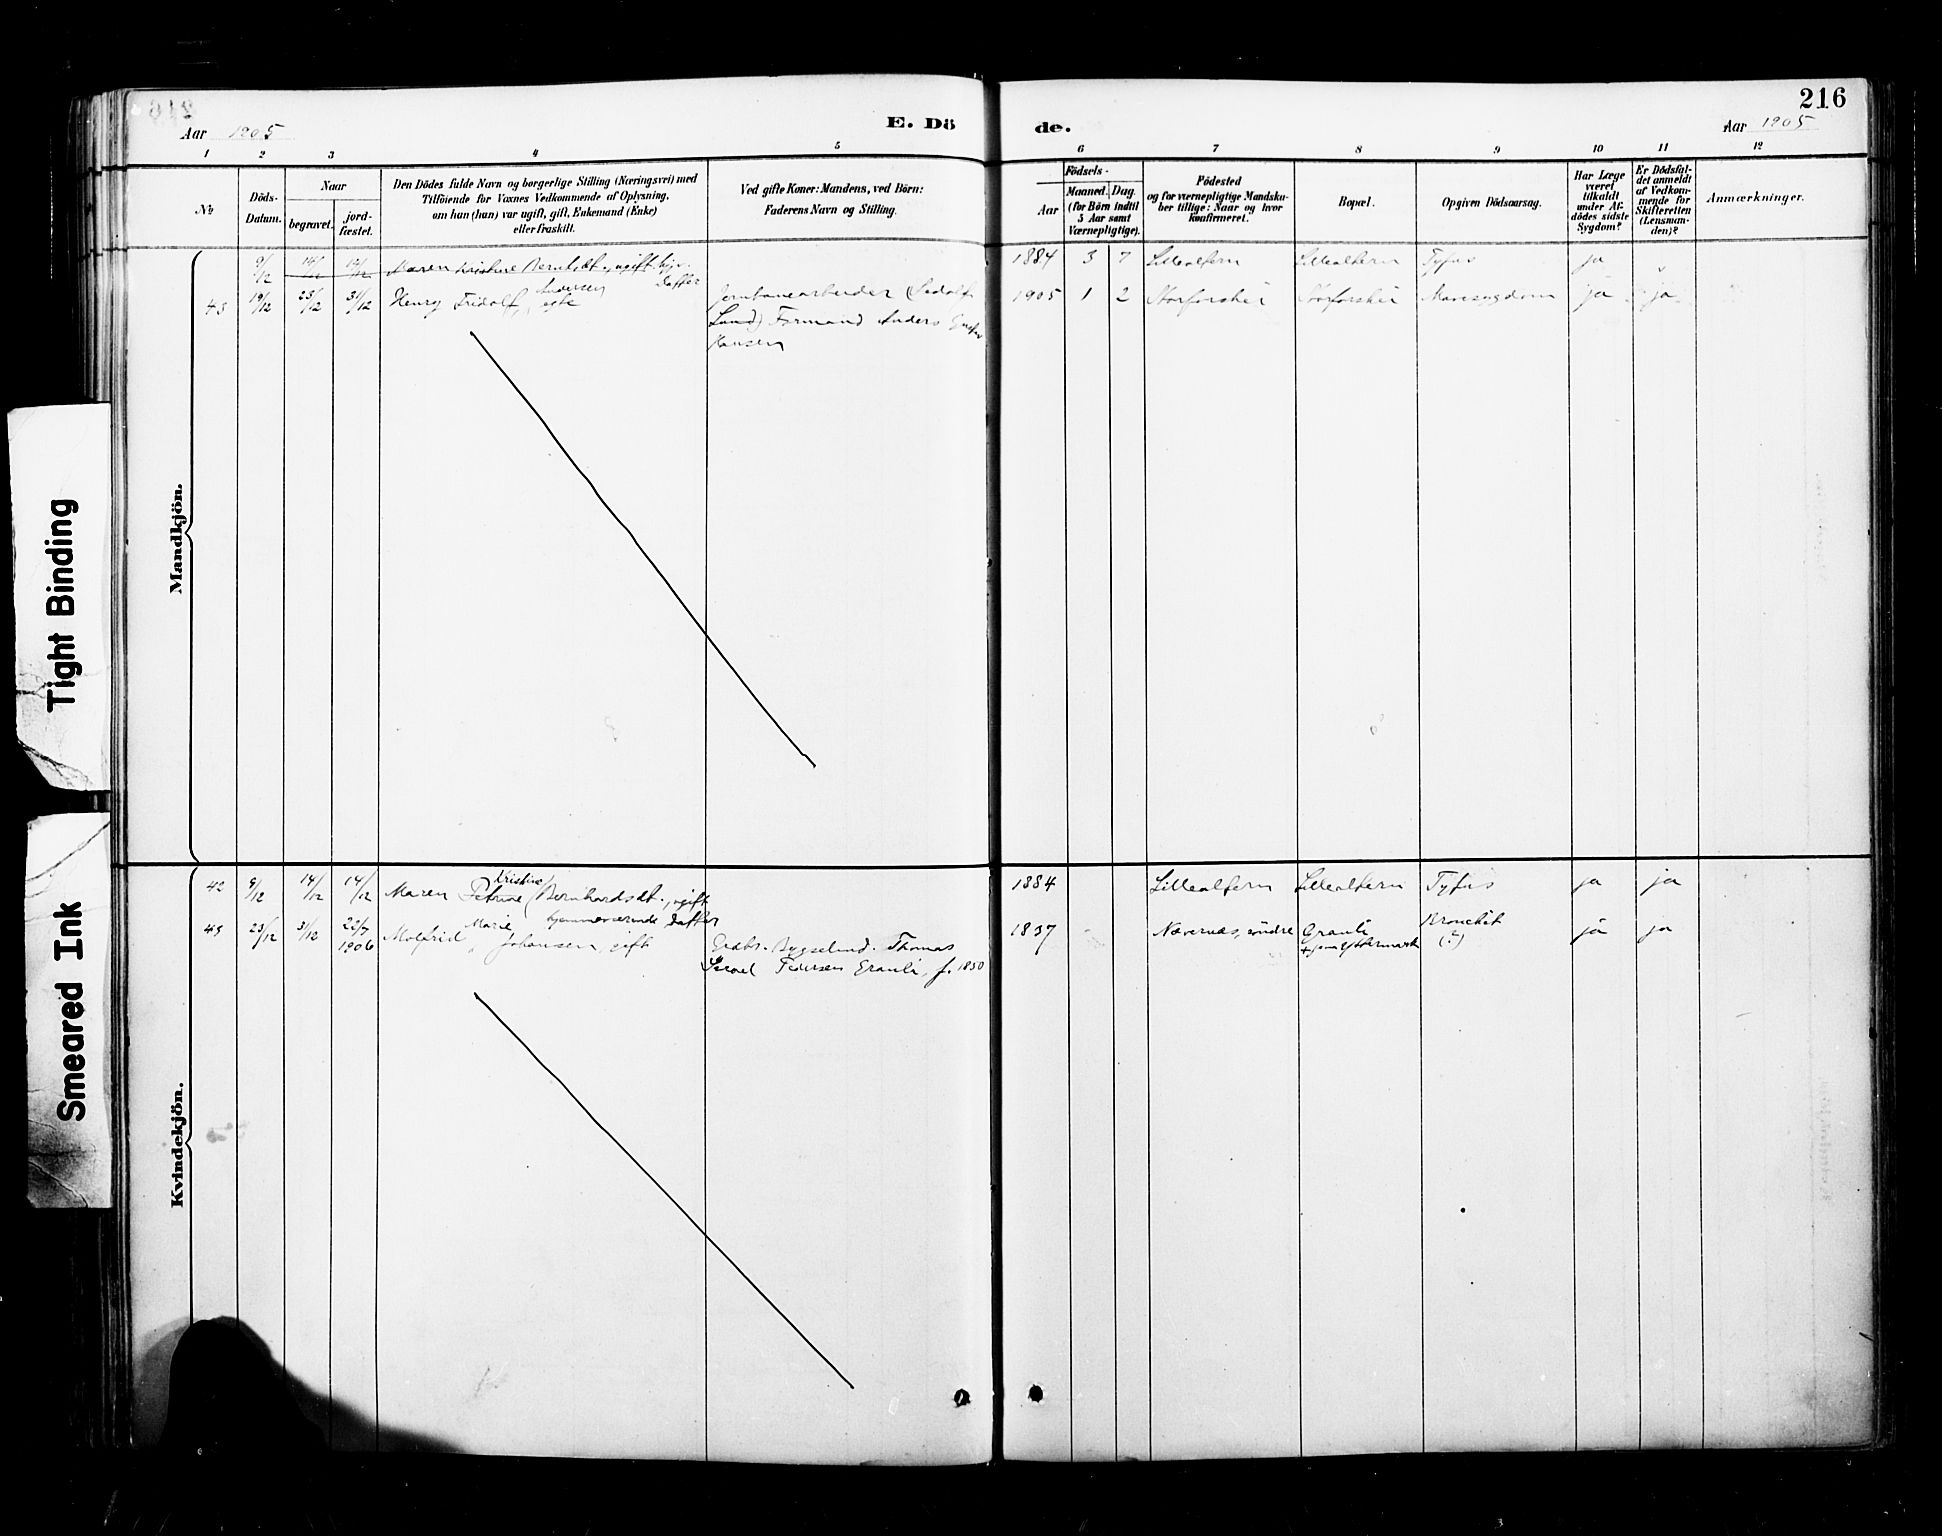 216
Aar 1905
E. Dö
de.
Aar 1905
1 2 3 4 5 6 7 8 9 10 11 12
No
Döds-
Datum.
Naar
begravet.
jord-
fæstet.
Den Dödes fulde Navn og borgerlige Stilling (Næringsvei) med
Tilföiende for Voxnes Vedkommende af Oplysning,
om han (hun) var ugift, gift, Enkemand (Enke)
eller fraskilt.
Ved gifte Koner: Mandens, ved Börn:
Faderens Navn og Stilling.
Födsels-
Aar
Maaned.
Dag.
(for Börn indtil
5 Aar samt
Værnepligtige).
Födested
og for værnepligtige Mandsku-
ber tillige: Naar og hvor
konfirmeret.
Bopæl.
Opgiven Dödsaarsag.
Har Læge
været
tilkaldt
under Af-
dödes sidste
Sygdom?
Er Dödsfal-
det anmeldt
af Vedkom-
mende for
Skifteretten
(Lensman-
den)?
Anmærkninger.
Mandkjön.
9/12 14/12 14/12 Maren Kristine Berntsdt., ugift hjv. Datter 1884 3 7 Lillealteren Lillealteren Tyfus ja
43 19/12 23/12 31/12 Henry Fridolf Andersen, egte Jernbanearbeider 1905 1 2 Storforshei Storforshei Mavesygdom ja ja
Lund) Formand Anders
Hansen
Kvindekjön.
42 9/12 14/12 14/12 Maren Petrine (Kristine) Bernhardsdt., ugift 1884 Lillealtern Lillealtern Tyfus ja ja
hjemmeværende Datter
45 23/12 31/12 22/7 1906 Molfrid Marie Johansen, gift Gaabr. Bygselmd. Thomas 1837 Nævernes, söndre Granli Bronchit (?) ja ja
Israel Pedersen Granli, f. 1850
Tight Binding
Smeared Ink